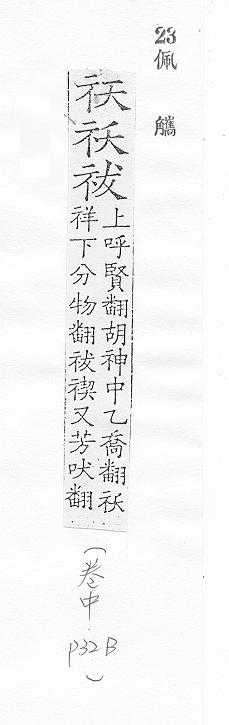 23
佩觿
祆祅祓
上呼賢翻胡神中乙喬翻祅
祥下分物翻祓禊又芳吠翻
(卷中
P32B)